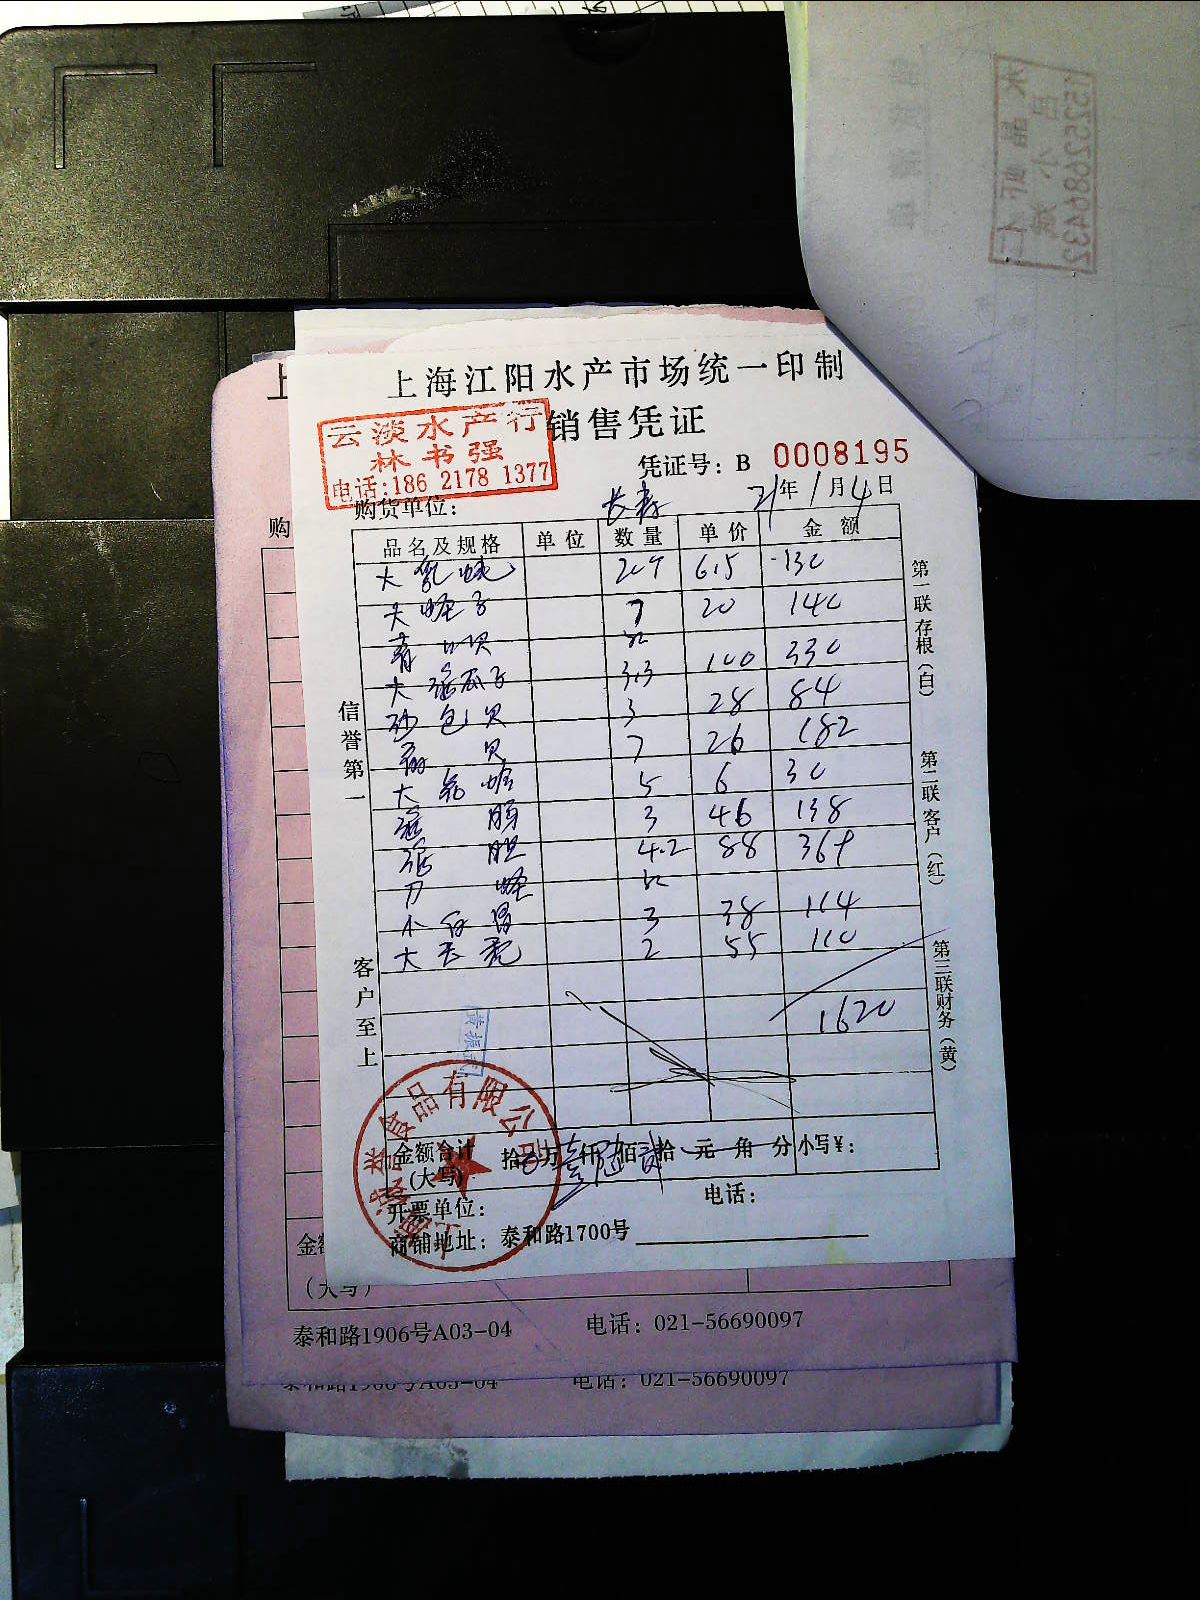 上海江阳水产市场统一印制
销售凭证
云淡水产行
林书强
电话:186 2178 1377
凭证号: B 0008195
购货单位: 长寿 21年1月4日
品名及规格 单位 数量 单价 金额
大 6.5 130
大蛏子 7 20 140
青口贝
大 瓜子 3.3 100 330
沙包贝 3 28 84
扇贝 7 26 182
大 蛤 5 6 30
3 46 138
胆 4.2 88 369
刀蛏
小 3 38 114
大 2 55 110
1620
信誉第一
客户至上
第一联存根(白)
第二联客户(红)
第三联财务(黄)
食品有限公司
金额合计 拾 万 仟 佰 拾 元 角 分 小写¥:
(大写)
开票单位: 电话:
商铺地址: 泰和路1700号
购
(大写)
泰和路1906号A03-04 电话: 021-56690097
泰和路1906号A03-04 电话: 021-56690097
水晶虾仁
15252686432